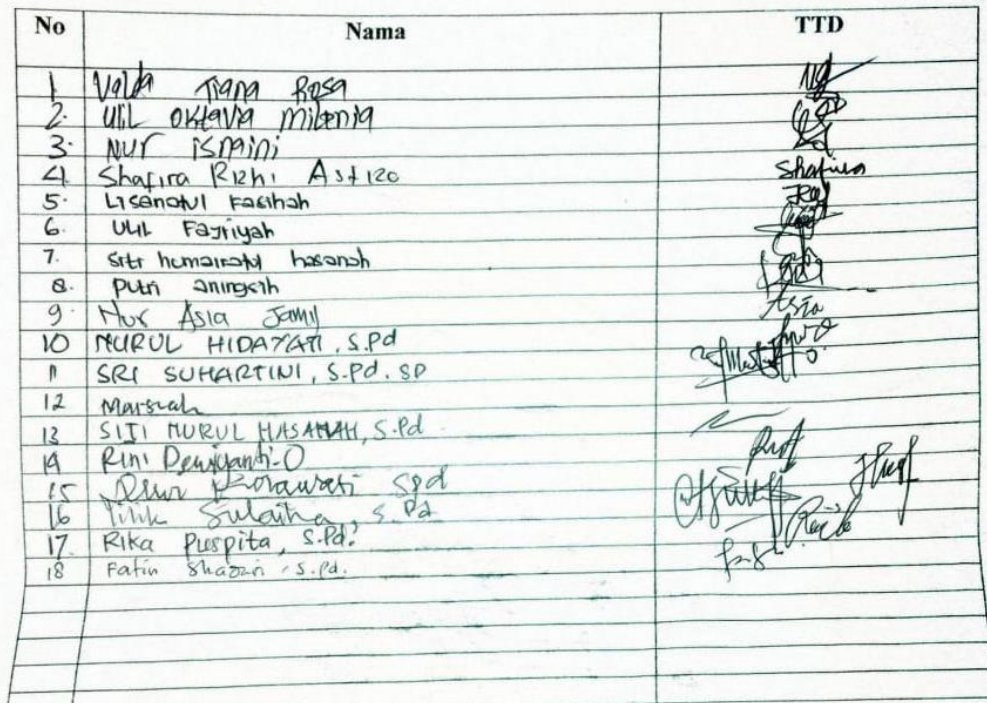 No Nama TTD
1 Valda Tiana Rosa
2. Ulil Oktavia Milenia
3. Nur Ismaini
4. Shafira Rizhi Astizo Shafira
5. Lisanatul Fasihah
6. Ulil Fajriyah
7. Siti humairatul hasanah
8. Putri aningsih
9. Nur Asia Jamil Asia
10 NURUL HIDAYATI, S.Pd
11 SRI SUHARTINI, S.Pd. SD
12 Marsiah
13 SITI NURUL HASANAH, S.Pd
14 Rini Dewiyanti.O
15 Spd
16 Titik Sulaiha, S.Pd
17. Rika Puspita, S.Pd.
18 Fatin Shazzri, S.Pd.